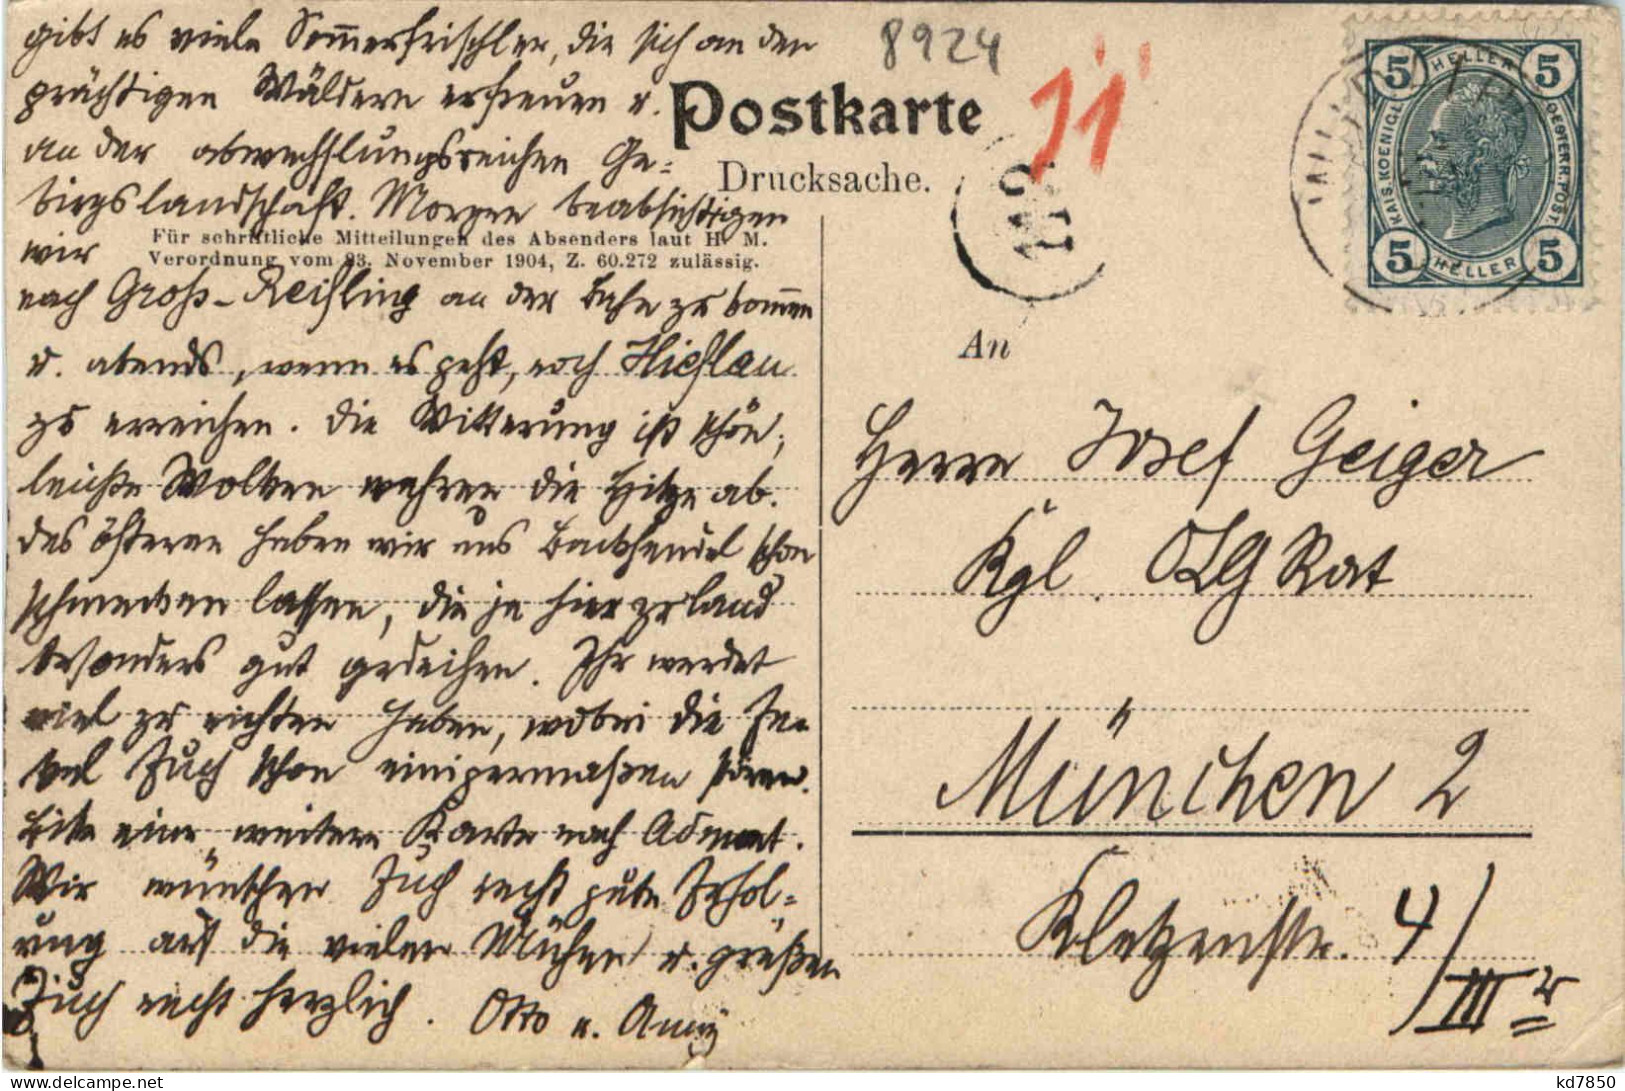 gibt es viele Sommerfrischler, die sich an den
prächtigen Wäldern erfreuen u.
an der abwechslungsreichen Ge-
birgslandschaft. Morgen beabsichtigen
wir
nach Groß-Reifling an der Bahn zu kommen
u. abends, wenn es geht, noch Hieflau
zu erreichen. Die Witterung ist schön;
leichte Wolken wehren die Hitze ab.
Des öfteren haben wir uns Backhendel schon
schmecken lassen, die ja hier zu land
besonders gut gedeihen. Ihr werdet
viel zu richten haben, wobei die
Euch schon einigermaßen stören.
Bitte eine weitere Karte nach Admont.
Wir wünschen Euch recht gute Erhol-
ung auf die vielen Mühen u. grüßen
Euch recht herzlich. Otto u. Anny
8924
Postkarte
Drucksache.
Für schriftliche Mitteilungen des Absenders laut H. M.
Verordnung vom 23. November 1904, Z. 60.272 zulässig.
112
5 HELLER 5
KAIS. KOENIGL. OESTERR. POST.
5 HELLER 5
An
Herrn Josef Geiger
Kgl. OLG Rat
München 2
Kletzenstr. 4/III r
kd7850